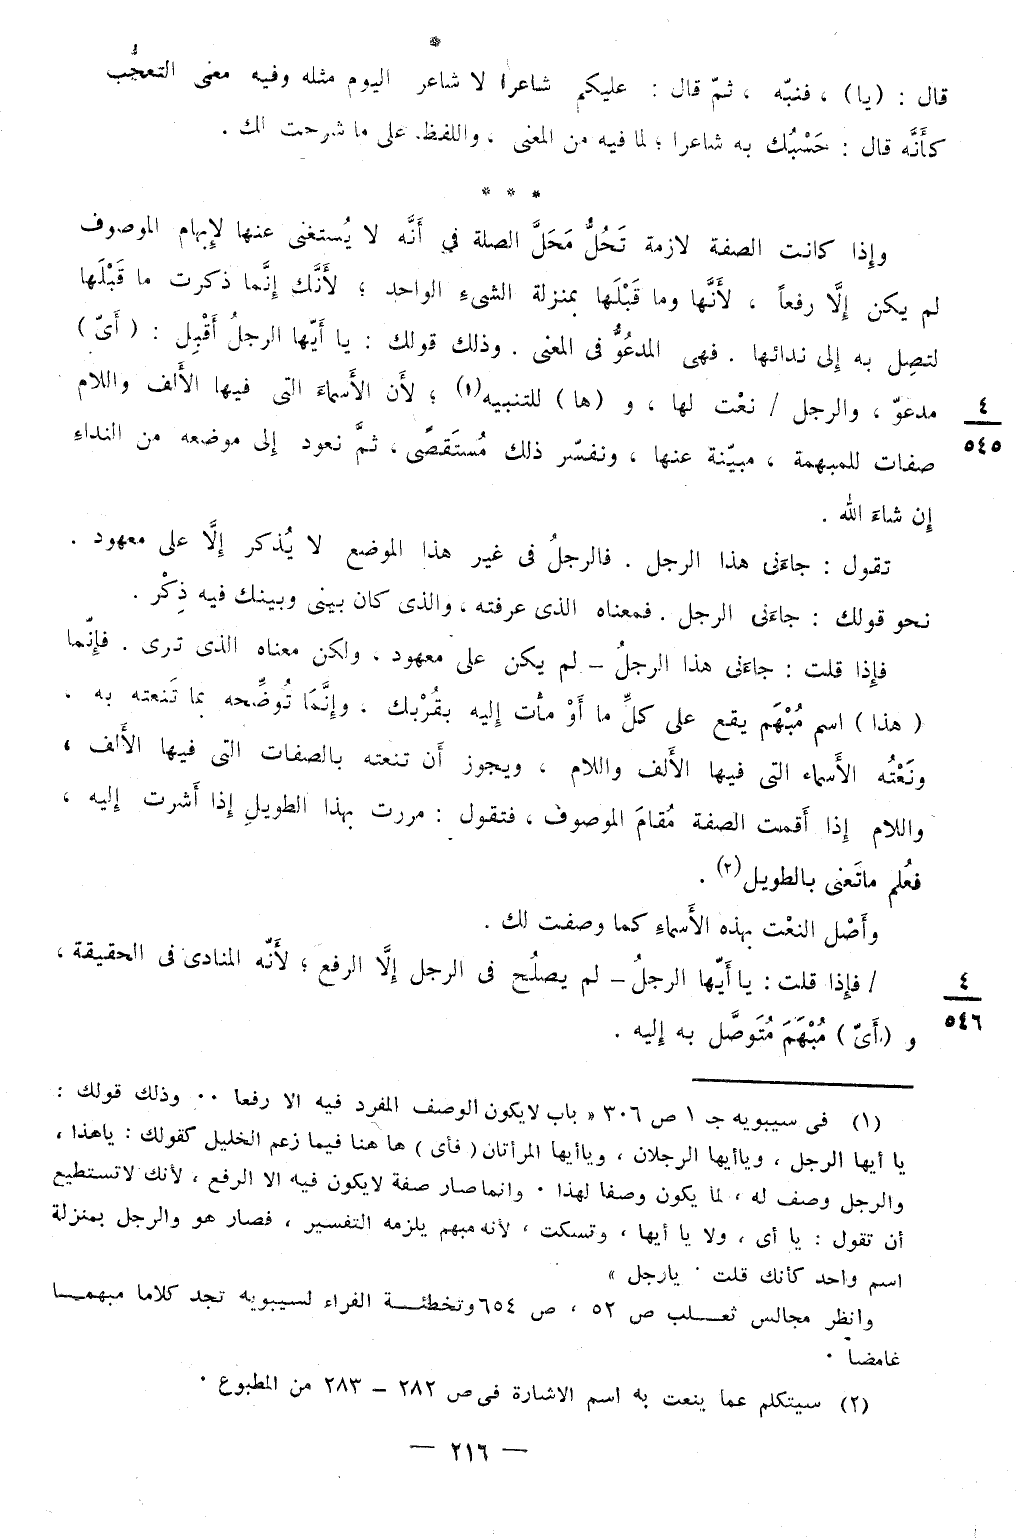 *
قال : (يا) ، فنبّه ، ثمّ قال : عليكم شاعرا لا شاعر اليوم مثله وفيه معنى التعجُّب
كأَنَّه قال : حَسْبُك به شاعرا ؛ لما فيه من المعنى ، واللفظ على ما شرحت لك .
* * *
وإِذا كانت الصفة لازمة تَحُلُّ مَحَلَّ الصلة في أَنَّه لا يُستغنى عنها لإِبهام الموصوف
لم يكن إِلَّا رفعاً ، لأَنَّها وما قَبْلَها بمنزلة الشىءِ الواحد ؛ لأَنَّك إِنَّما ذكرت ما قَبْلَها
لتصِل به إِلى ندائها . فهى المدعُوُّ فى المعنى . وذلك قولك : يا أَيّها الرجلُ أَقْبِل : ( أَىّ )
مدعوّ ، والرجل / نعْت لها ، و (ها) للتنبيه(١) ؛ لأَن الأَسماءَ التى فيها الأَلف واللام
٤
٥٤٥
صفات للمبهمة ، مبيّنة عنها ، ونفسّر ذلك مُستَقصًى ، ثمَّ نعود إِلى موضعه من النداءِ
إِن شاءَ الله .
تقول : جاءَنى هذا الرجل . فالرجلُ فى غير هذا الموضع لا يُذكر إِلَّا على معهود .
نحو قولك : جاءَنى الرجل . فمعناه الذى عرفته ، والذى كان بينى وبينك فيه ذِكْر .
فإِذا قلت : جاءَنى هذا الرجلُ – لم يكن على معهود ، ولكن معناه الذى ترى . فإِنّما
( هذا ) اسم مُبْهَم يقع على كلِّ ما أَوْ مأْت إليه بقُرْبك . وإِنَّمَا تُوضِّحه بما تَنعته به .
ونَعْتُه الأَسماء التى فيها الأَلف واللام ، ويجوز أَن تنعته بالصفات التى فيها الأَلف ،
واللام إِذا أَقمت الصفة مُقامَ الموصوف ، فتقول : مررت بهذا الطويلِ إِذا أَشرت إليه ،
فعُلم ماتَعنى بالطويل(٢) .
وأَصْل النعْت بهذه الأَسماءِ كما وصفت لك .
/ فإِذا قلت : يا أَيّها الرجلُ – لم يصلُح فى الرجل إِلَّا الرفع ؛ لأَنَّه المنادى فى الحقيقة ،
٤
٥٤٦
و (أَىّ ) مُبْهَمَ مُتَوصَّل به إِليه .
(١) فى سيبويه جـ ١ ص ٣٠٦ « باب لايكون الوصف المفرد فيه الا رفعا ٠٠ وذلك قولك :
يا أيها الرجل ، وياأيها الرجلان ، وياأيها المرأتان ( فأى ) ها هنا فيما زعم الخليل كقولك : ياهذا ،
والرجل وصف له ، لما يكون وصفا لهذا ٠ وانما صار صفة لايكون فيه الا الرفع ، لأنك لاتستطيع
أن تقول : يا أى ، ولا يا أيها ، وتسكت ، لأنه مبهم يلزمه التفسير ، فصار هو والرجل بمنزلة
اسم واحد كأنك قلت ٠ يارجل »
وانظر مجالس ثعـــلب ص ٥٢ ، ص ٦٥٤ وتخطئـــة الفراء لسيبويه تجد كلاما مبهمــا
غامضا ٠
(٢) سيتكلم عما ينعت به اسم الاشارة فى ص ٢٨٢ – ٢٨٣ من المطبوع ٠
— ٢١٦ —